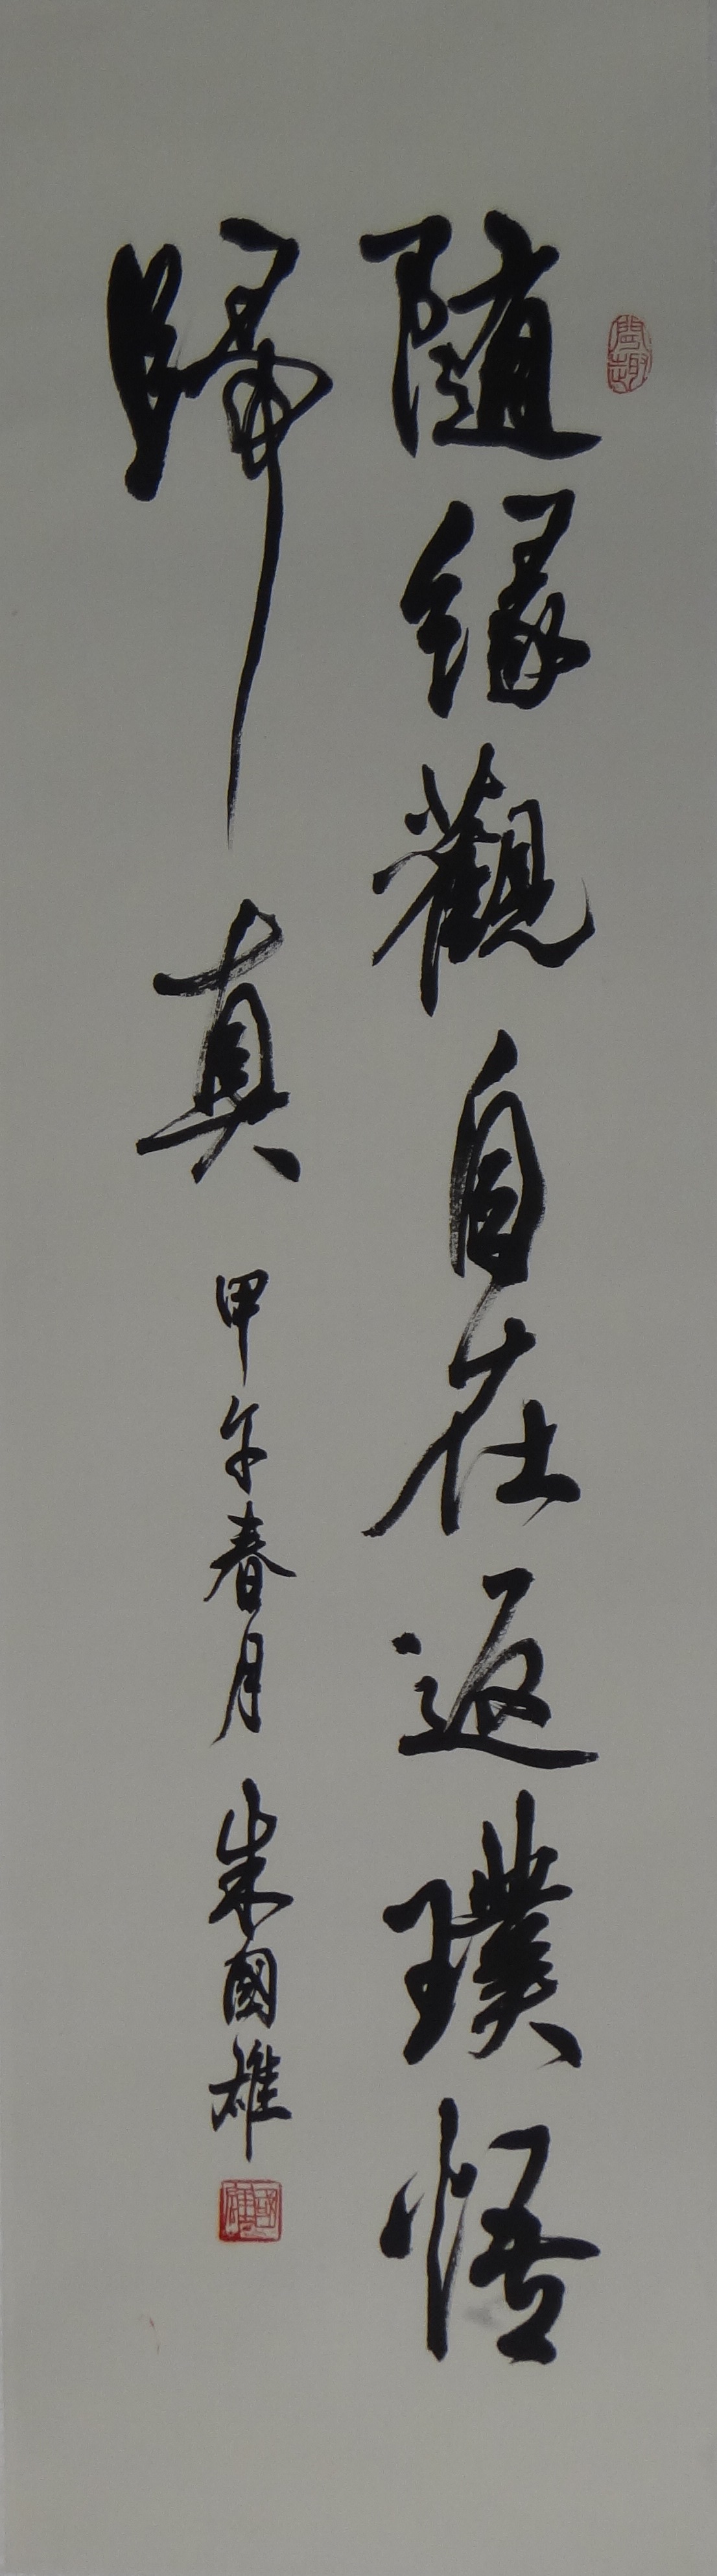 隨緣觀自在返璞悟
歸真
甲午春月朱國雄
國雄